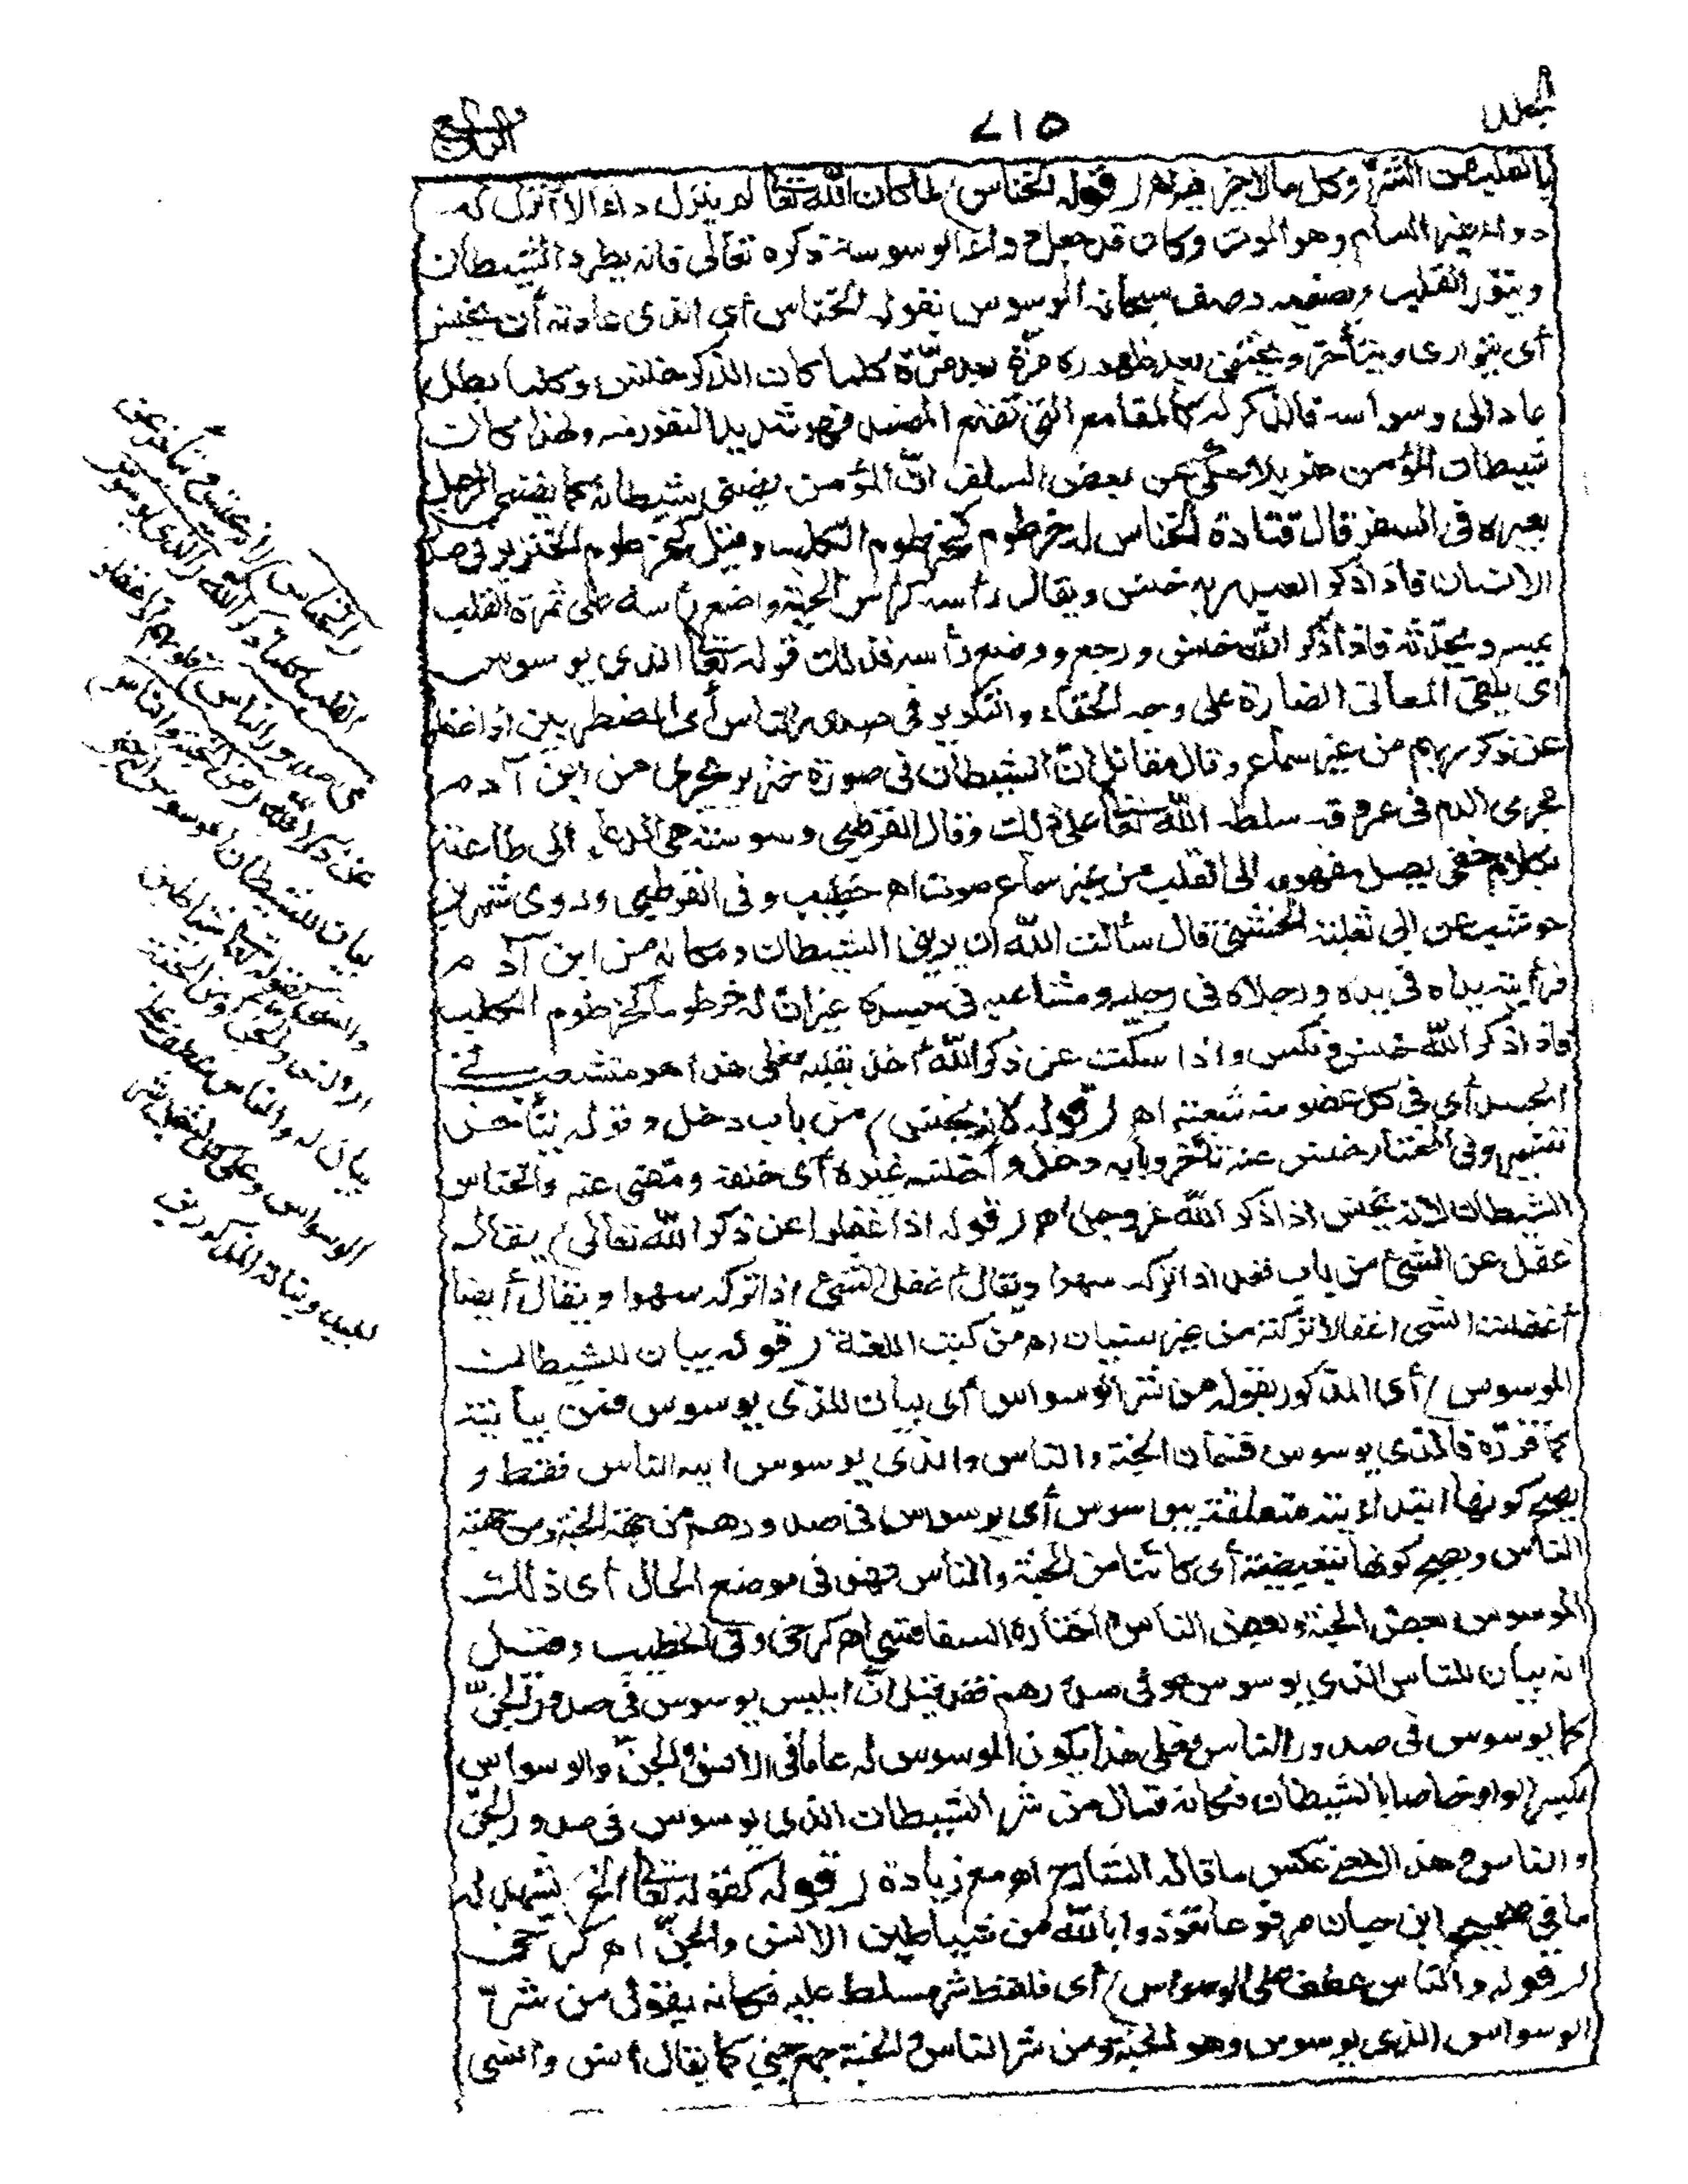 المجلد
٧١٥
الرابع
بالقلب من الشر وكل ما لا خير فيه اهـ (قوله الخناس) لما كان الله تعالى لم ينزل داء الا أنزل له
دواء غير السام وهو الموت وكان قد جعل دواء الوسوسة ذكره تعالى فانه يطرد الشيطان
وينور القلب ويصفيه وصف سبحانه الموسوس بقوله الخناس أي الذي عادته أن يخنس
أي يتوارى ويتأخر ويختفي بعد ظهوره مرة بعد مرة كلما كان الذكر خنس وكلما بطل
عاد الى وسواسه فالذكر له كالمقامع التي تقمع المفسد فهو شديد النفور منه ولهذا كان
شيطان المؤمن هزيلا حكي عن بعض السلف ان المؤمن يضني شيطانه كما يضني الرجل
بعيره في السفر قال قتادة الخناس له خرطوم كخرطوم الكلب وقيل كخرطوم الخنزير في صدر
الانسان فاذا ذكر العبد ربه خنس ويقال رأسه كرأس الحية واضع رأسه على ثمرة القلب
يمسه ويحدثه فاذا ذكر الله خنس ورجع ووضع رأسه فذلك قوله تعالى الذي يوسوس
أي يلقي المعاني الضارة على وجه الخفاء والتكرير في صدور الناس أي المضطربين اذا غفلوا
عن ذكر ربهم من غير سماع وقال مقاتل ان الشيطان في صورة خنزير يجري من ابن آدم
مجرى الدم في عروقه سلطه الله تعالى على ذلك وقال القرطبي وسوسته هي الدعاء الى طاعته
بكلام خفي يصل مفهومه الى القلب من غير سماع صوت اهـ خطيب وفي القرطبي وروى شهر بن
حوشب عن ابي ثعلبة الخشني قال سألت الله ان يريني الشيطان ومكانه من ابن آدم
فرأيته يداه في يديه ورجلاه في رجليه ومشاعبه في جسده غير ان له خرطوما كخرطوم الكلب
فاذا ذكر الله خنس ونكس واذا سكت عن ذكر الله أخذ بقلبه فعلى هذا هو متشعب في
الجسد أي في كل عضو منه شعبة اهـ (قوله لانه يخنس) من باب دخل وقوله يتأخر
تفسير وفي المختار خنس عنه تأخر وبابه دخل وأخنسه غيره أي خلفه ومضى عنه والخناس
الشيطان لانه يخنس اذا ذكر الله عز وجل اهـ (قوله اذا غفلوا عن ذكر الله تعالى) يقال
غفل عن الشيء من باب قعد اذا تركه سهوا ويقال أغفل الشيء اذا تركه سهوا ويقال أيضا
أغفلت الشيء اغفالا تركته من غير نسيان اهـ من كتب اللغة (قوله بيان للشيطان
الموسوس) أي المذكور بقوله من شر الوسواس أي بيان للذي يوسوس فمن بيانية
كما قرره فالذي يوسوس قسمان الجنة والناس والذي يوسوس اليه الناس فقط و
يصح كونها ابتدائية متعلقة بيوسوس أي يوسوس في صدورهم من جهة الجنة ومن جهة
الناس ويصح كونها تبعيضية أي كائنا من الجنة والناس فهو في موضع الحال أي ذلك
الموسوس بعض الجنة وبعض الناس واختاره السفاقسي اهـ كرخي وفي الخطيب وقيل
انه بيان للناس الذي يوسوس هو في صدورهم فقد قيل ان ابليس يوسوس في صدور الجن
كما يوسوس في صدور الناس فعلى هذا يكون الموسوس له عاما في الانس والجن والوسواس
بكسر الواو خاصا بالشيطان فكأنه قال من شر الشيطان الذي يوسوس في صدور الجن
والناس هذا عكس ما قاله الشارح اهـ مع زيادة (قوله كقوله تعالى الخ) يشهد له
ما في صحيح ابن حبان مرفوعا تعوذوا بالله من شياطين الانس والجن اهـ كرخي
(قوله والناس عطف على الوسواس) أي فلفظ شر مسلط عليه فكأنه يقول من شر
الوسواس الذي يوسوس وهو الجنة ومن شر الناس والجنة جمع جني كما يقال أنس وانسي
(الخناس) لانه يخنس ويتأخر عن
القلب كلما ذكر الله (الذي يوسوس
في صدور الناس) قلوبهم اذا غفلوا
عن ذكر الله (من الجنة والناس)
بيان للشيطان الموسوس انه جني
وانسي كقوله تعالى شياطين
الانس والجن أو من الجنة
بيان له والناس عطف على
الوسواس وعلى كل يشمل شر
لبيد وبناته المذكورين